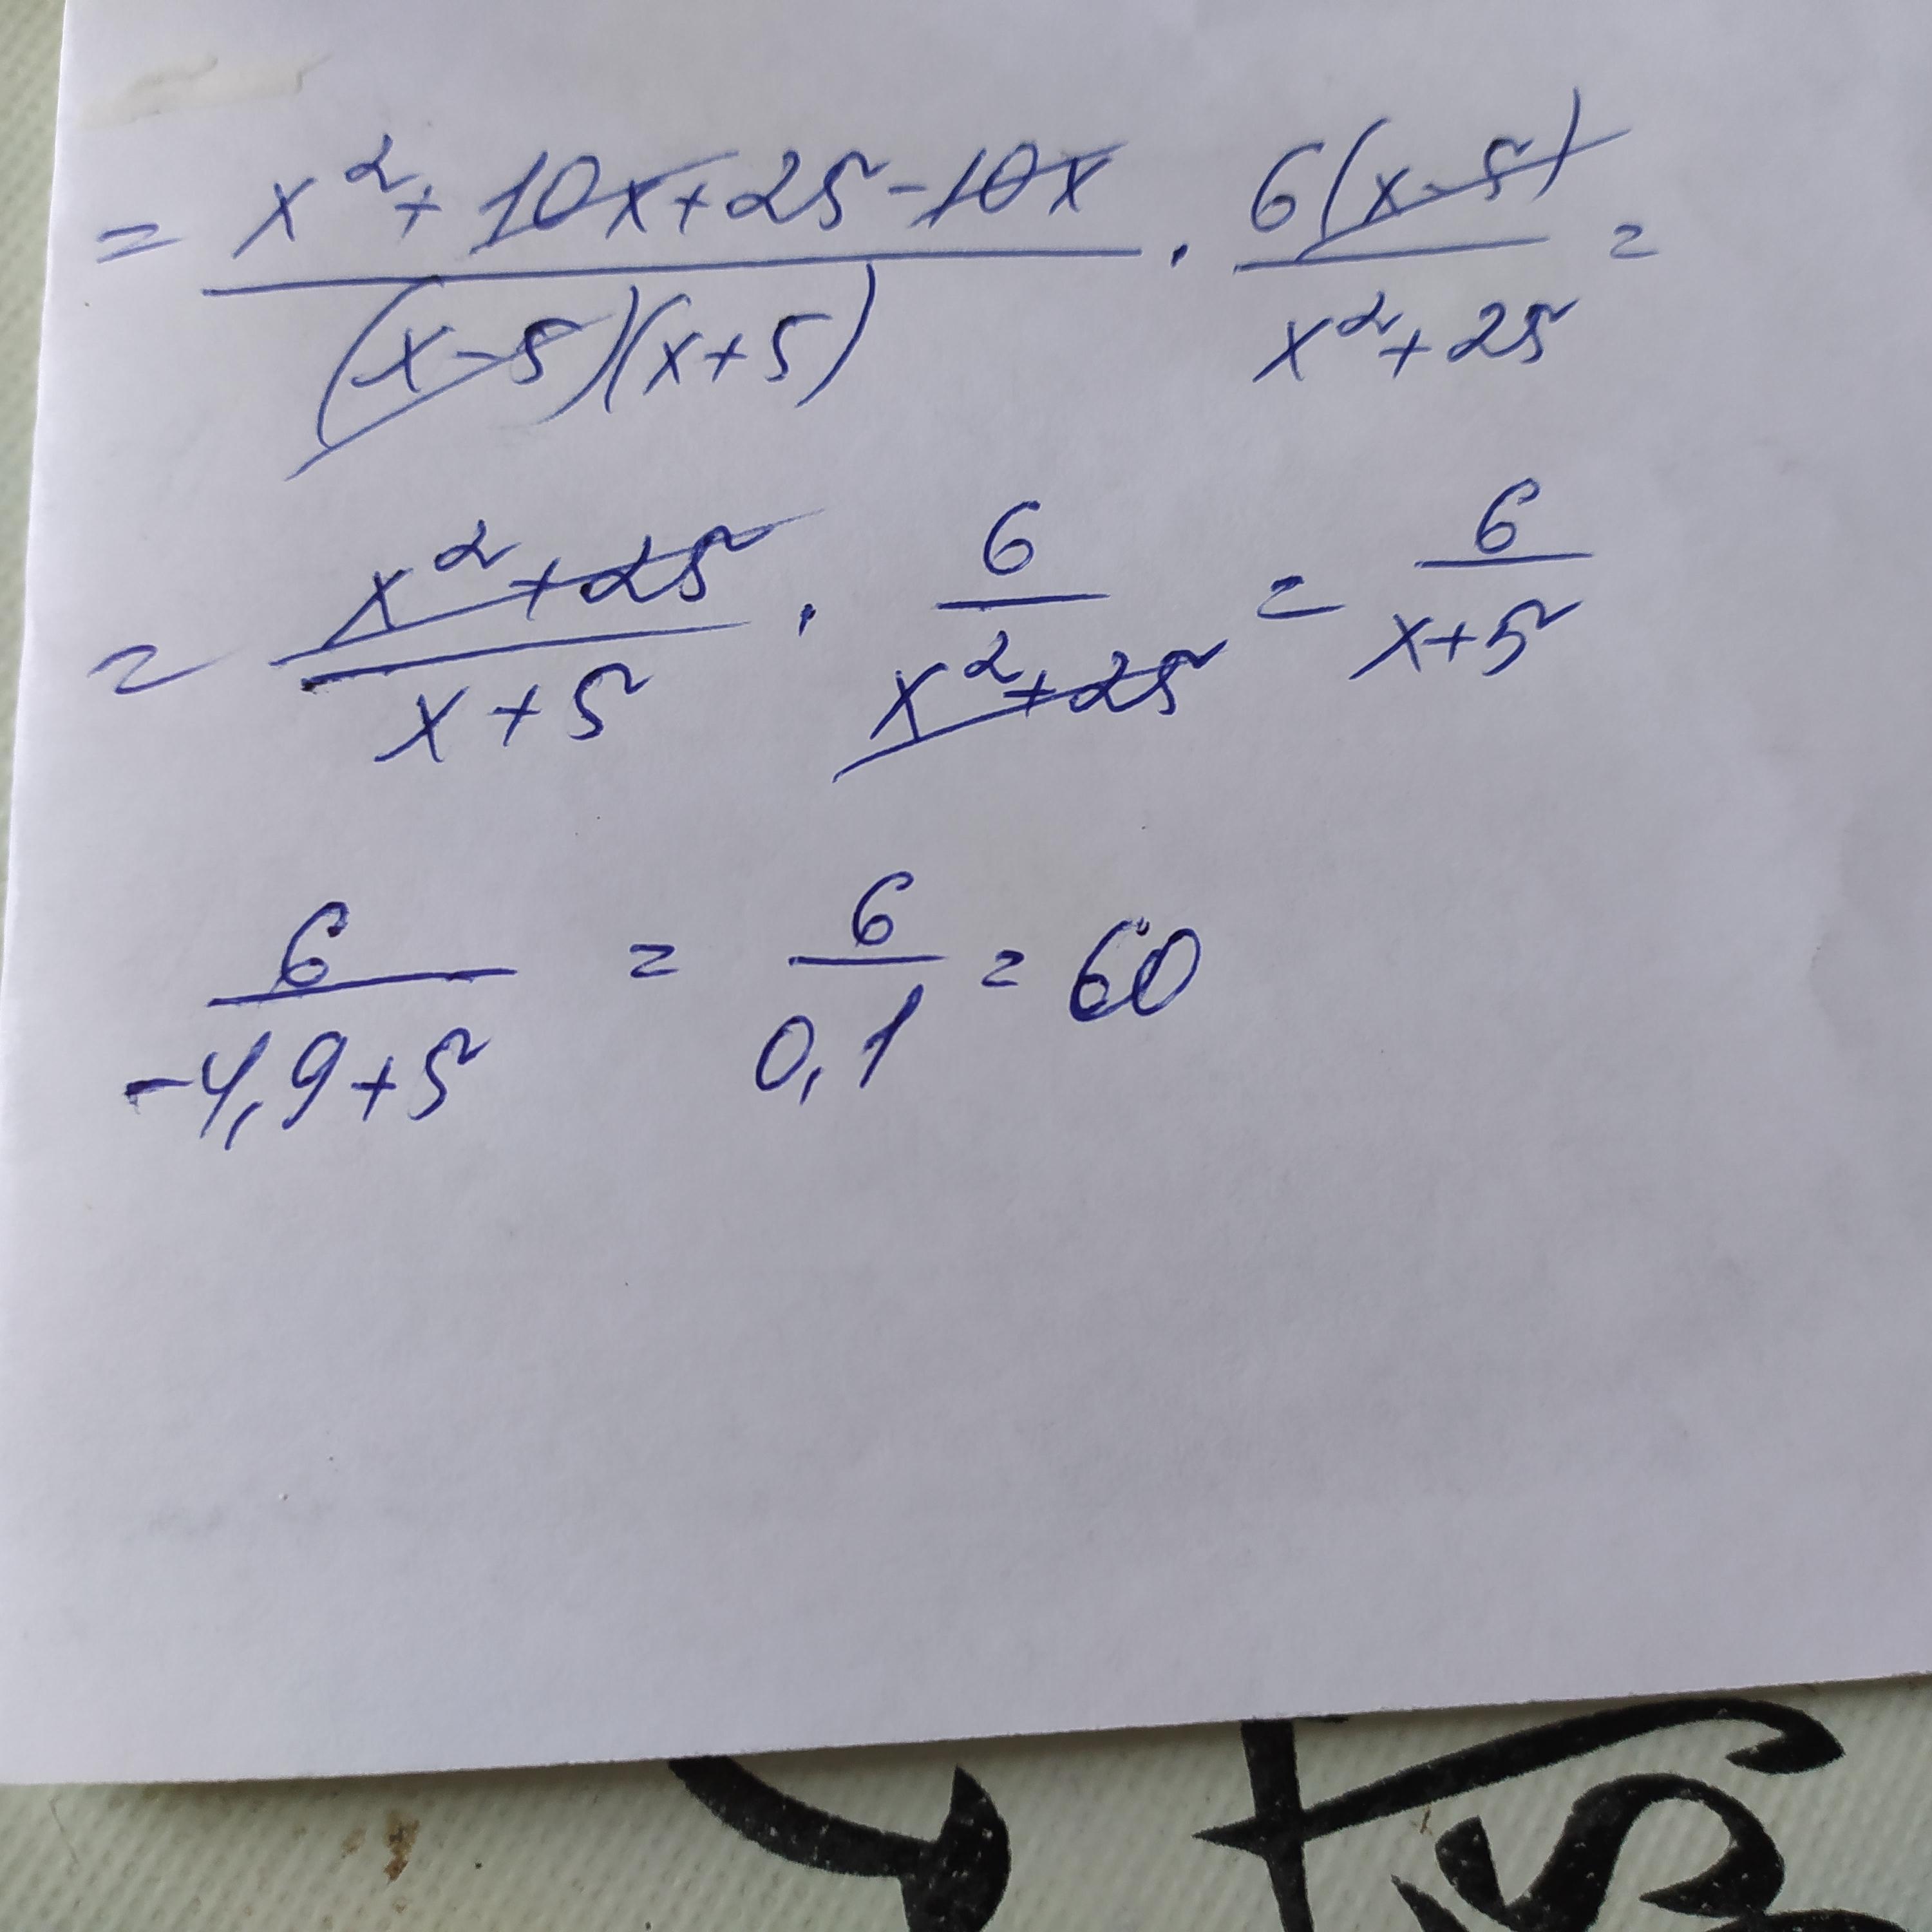 = (x² + 10x + 25 - 10x)/((x - 5)(x + 5)) · 6(x - 5)/(x² + 25) =
= (x² + 25)/(x + 5) · 6/(x² + 25) = 6/(x + 5)
6/(-4,9 + 5) = 6/0,1 = 60